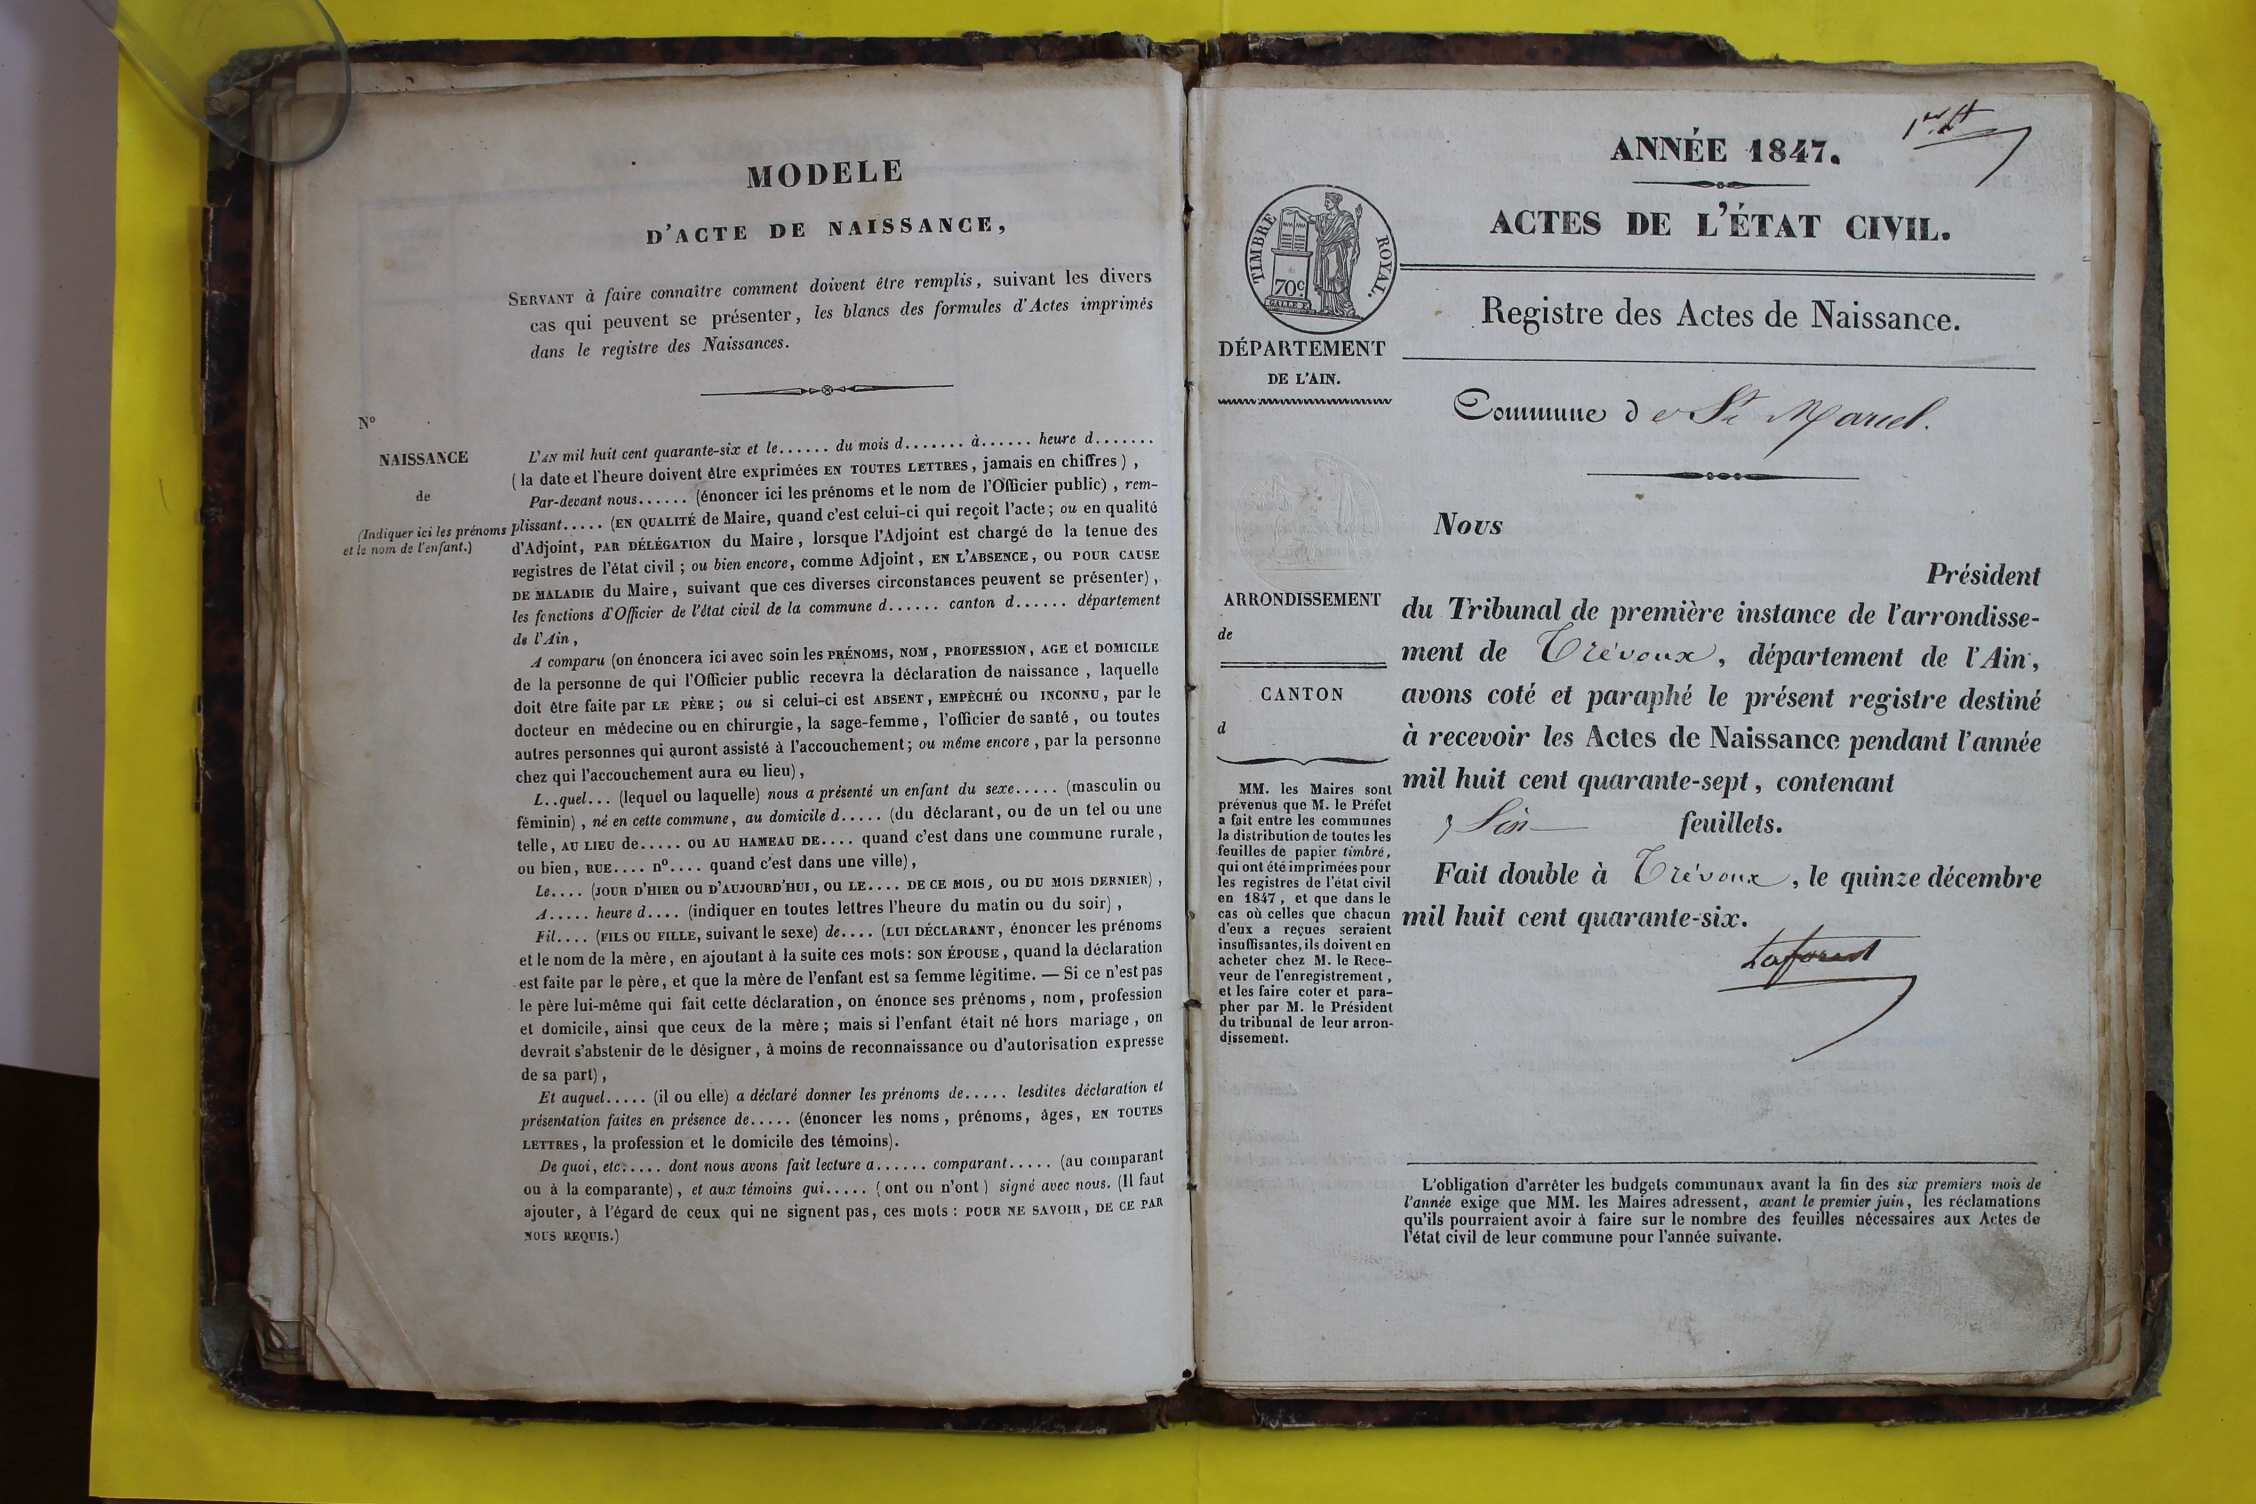 MODELE
D'ACTE DE NAISSANCE,
SERVANT à faire connaître comment doivent être remplis, suivant les divers
cas qui peuvent se présenter, les blancs des formules d'Actes imprimés
dans le registre des Naissances.
N°
NAISSANCE
de
(Indiquer ici les prénoms
et le nom de l'enfant.)
L'AN mil huit cent quarante-six et le...... du mois d....... à...... heure d.......
(la date et l'heure doivent être exprimées EN TOUTES LETTRES, jamais en chiffres),
Par-devant nous...... (énoncer ici les prénoms et le nom de l'Officier public), rem-
plissant..... (EN QUALITÉ de Maire, quand c'est celui-ci qui reçoit l'acte; ou en qualité
d'Adjoint, PAR DÉLÉGATION du Maire, lorsque l'Adjoint est chargé de la tenue des
registres de l'état civil; ou bien encore, comme Adjoint, EN L'ABSENCE, OU POUR CAUSE
DE MALADIE du Maire, suivant que ces diverses circonstances peuvent se présenter),
les fonctions d'Officier de l'état civil de la commune d...... canton d...... département
de l'Ain,
A comparu (on énoncera ici avec soin les PRÉNOMS, NOM, PROFESSION, AGE et DOMICILE
de la personne de qui l'Officier public recevra la déclaration de naissance, laquelle
doit être faite par LE PÈRE; ou si celui-ci est ABSENT, EMPÊCHÉ ou INCONNU, par le
docteur en médecine ou en chirurgie, la sage-femme, l'officier de santé, ou toutes
autres personnes qui auront assisté à l'accouchement; ou même encore, par la personne
chez qui l'accouchement aura eu lieu),
L..quel... (lequel ou laquelle) nous a présenté un enfant du sexe..... (masculin ou
féminin), né en cette commune, au domicile d..... (du déclarant, ou de un tel ou une
telle, AU LIEU de..... ou AU HAMEAU DE.... quand c'est dans une commune rurale,
ou bien, RUE.... n°.... quand c'est dans une ville),
Le.... (JOUR D'HIER OU D'AUJOURD'HUI, OU LE.... DE CE MOIS, OU DU MOIS DERNIER),
A..... heure d.... (indiquer en toutes lettres l'heure du matin ou du soir),
Fil.... (FILS OU FILLE, suivant le sexe) de.... (LUI DÉCLARANT, énoncer les prénoms
et le nom de la mère, en ajoutant à la suite ces mots: SON ÉPOUSE, quand la déclaration
est faite par le père, et que la mère de l'enfant est sa femme légitime. — Si ce n'est pas
le père lui-même qui fait cette déclaration, on énonce ses prénoms, nom, profession
et domicile, ainsi que ceux de la mère; mais si l'enfant était né hors mariage, on
devrait s'abstenir de le désigner, à moins de reconnaissance ou d'autorisation expresse
de sa part),
Et auquel..... (il ou elle) a déclaré donner les prénoms de..... lesdites déclaration et
présentation faites en présence de..... (énoncer les noms, prénoms, âges, EN TOUTES
LETTRES, la profession et le domicile des témoins).
De quoi, etc..... dont nous avons fait lecture a...... comparant..... (au comparant
ou à la comparante), et aux témoins qui..... (ont ou n'ont) signé avec nous. (Il faut
ajouter, à l'égard de ceux qui ne signent pas, ces mots: POUR NE SAVOIR, DE CE PAR
NOUS REQUIS.)
ANNÉE 1847.
ACTES DE L'ÉTAT CIVIL.
TIMBRE ROYAL.
70c
Registre des Actes de Naissance.
DÉPARTEMENT
DE L'AIN.
Commune de St Marcel.
ARRONDISSEMENT
de
CANTON
d
MM. les Maires sont
prévenus que M. le Préfet
a fait entre les communes
la distribution de toutes les
feuilles de papier timbré,
qui ont été imprimées pour
les registres de l'état civil
en 1847, et que dans le
cas où celles que chacun
d'eux a reçues seraient
insuffisantes, ils doivent en
acheter chez M. le Rece-
veur de l'enregistrement,
et les faire coter et para-
pher par M. le Président
du tribunal de leur arron-
dissement.
Nous
Président
du Tribunal de première instance de l'arrondisse-
ment de Trévoux, département de l'Ain,
avons coté et paraphé le présent registre destiné
à recevoir les Actes de Naissance pendant l'année
mil huit cent quarante-sept, contenant
feuillets.
Fait double à Trévoux, le quinze décembre
mil huit cent quarante-six.
L'obligation d'arrêter les budgets communaux avant la fin des six premiers mois de
l'année exige que MM. les Maires adressent, avant le premier juin, les réclamations
qu'ils pourraient avoir à faire sur le nombre des feuilles nécessaires aux Actes de
l'état civil de leur commune pour l'année suivante.